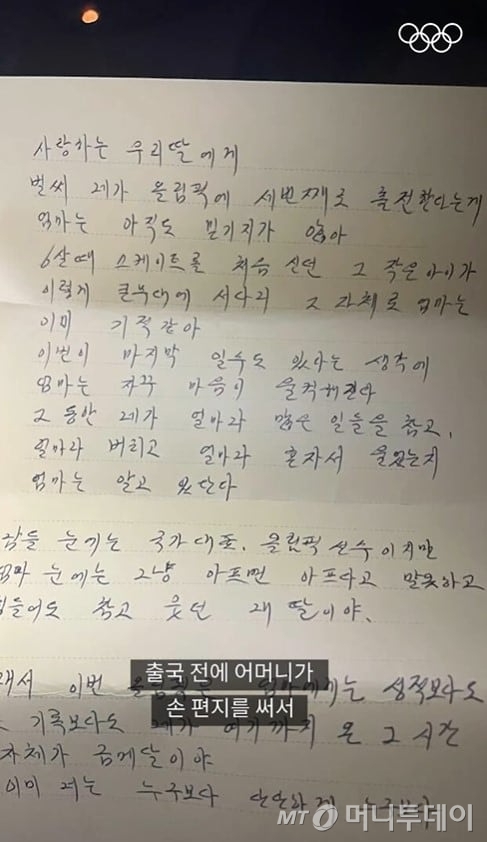 사랑하는 우리딸에게
벌써 레가 올림픽에 세번째로 출전한다는게
엄마는 아직도 믿기지가 않아
6살때 스케이트를 처음 신던 그 작은아이가
이렇게 큰무대에 서다니 그 자체로 엄마는
이미 기적같아
이번이 마지막 일수도 있다는 생각에
엄마는 자꾸 마음이 울컥해진다
그 동안 레가 얼마나 많은 일들을 참고,
얼마나 버티고 얼마나 혼자서 울었는지
엄마는 알고 있단다
눈에는 국가대표. 올림픽 선수이지만
엄마 눈에는 그냥 아프면 아프다고 말못하고
힘들어도 참고 웃던 내 딸이야.
이번 성적보다도
출국 전에 어머니가
기록보다도 레가 여기까지 온 그 시간
손 편지를 써서
자체가 금메달이야
이미 너는 누구보다 단단하게 누구보다
MT 머니투데이